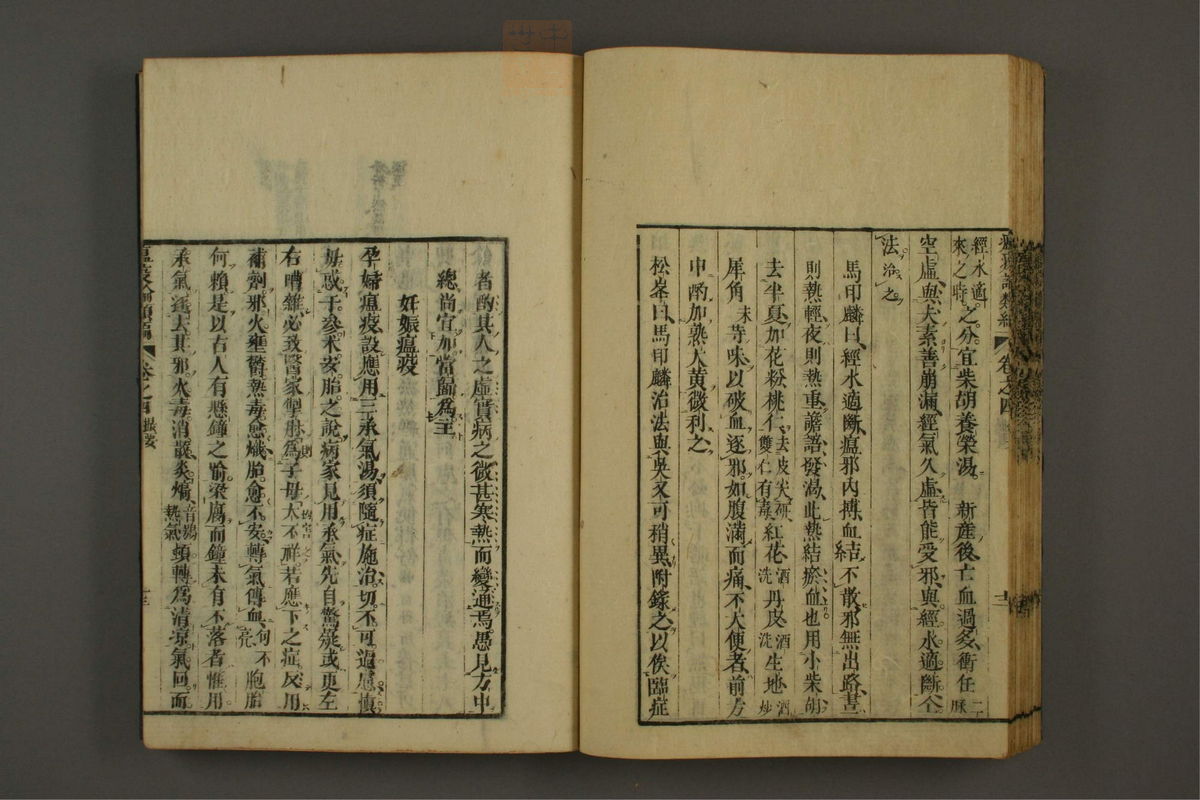 經水適來之時之分宜柴胡養榮湯。新產後亡血過多衝任二脉
空虛與夫素善崩漏經氣久虛皆能受邪與經水適斷仝
法治之
馬印麟曰經水適斷瘟邪內搏血結不散邪無出路晝
則熱輕夜則熱重譫語發渴此熱結瘀血也用小柴胡
去半夏加花粉桃仁去皮尖研雙仁有毒紅花酒洗丹皮酒洗生地酒炒
犀角末等味以破血逐邪如腹滿而痛不大便者前方
中酌加熟大黃微利之
松峯曰馬印麟治法與吳又可稍異附錄之以俟臨症
者酌其人之虛實病之微甚寒熱而變通焉愚見方中
總尚宜加當歸為主
妊娠瘟疫
孕婦瘟疫設應用三承氣湯須隨症施治切不可過慮慎
毋惑于參朮安胎之說病家見用承氣先自驚疑或更左
右嘈雜必致醫家掣肘為子母大不祥若應下之症反用
補劑邪火壅鬱熱毒愈熾胎愈不安轉氣傳血胞胎
何賴是以古人有懸鐘之喻梁腐而鐘未有不落者惟用
承氣逐去其邪火毒消散炎熇熱氣頓轉為清涼氣回而
卷之四